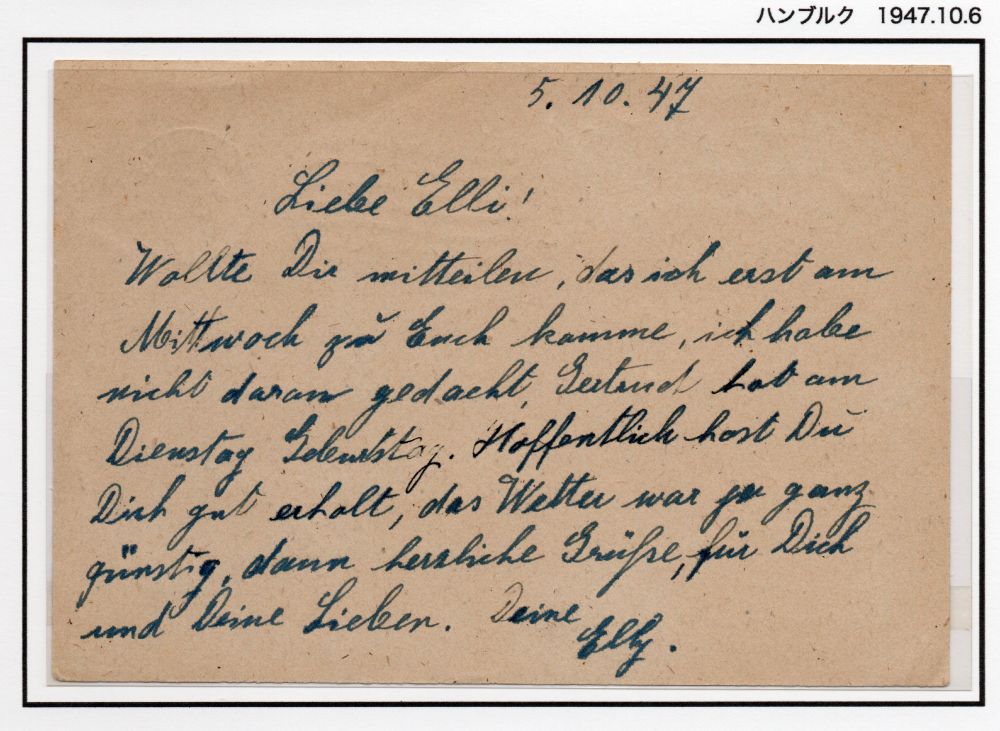 ハンブルク 1947.10.6
5. 10. 47
Liebe Elli!
Wollte Dir mitteilen, das ich erst am
Mittwoch zu Euch komme, ich habe
nicht daran gedacht, Gertrud hat am
Dienstag Geburtstag. Hoffentlich hast Du
Dich gut erholt, das Wetter war ja ganz
günstig, dann herzliche Grüße, für Dich
und Deine Lieben. Deine
Elly.